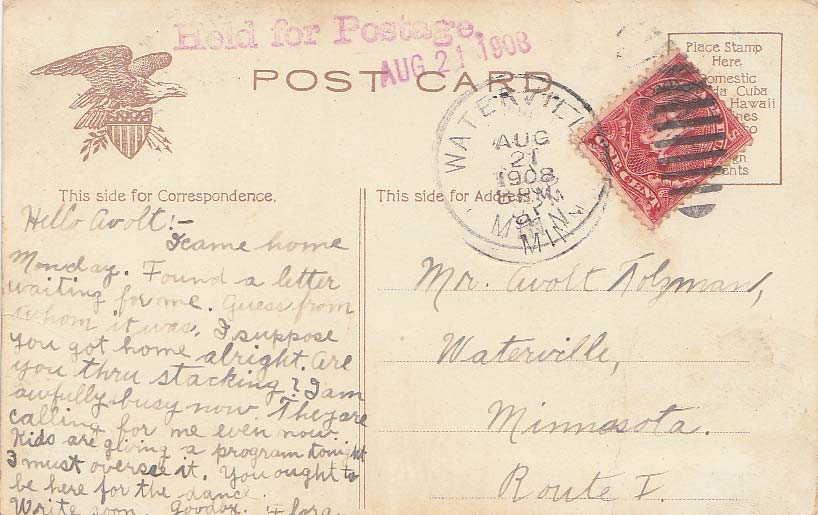 Held for Postage.
AUG 21 1908
POST CARD
Place Stamp
Here
Domestic
Cuba
Hawaii
WATERVILLE
AUG
21
1908
MINN
ONE CENT
This side for Correspondence.
Hello Avolt!-
I came home
Monday. Found a letter
waiting for me. Guess from
whom it was. I suppose
you got home alright. Are
you thru stacking? I am
awfully busy now. They are
calling for me even now.
Kids are giving a program tonight
I must oversee it. You ought to
be here for the dance.
Write soon. Goodby. Flora.
This side for Address.
Mr. Avolt Tolzman,
Waterville,
Minnesota.
Route 1.